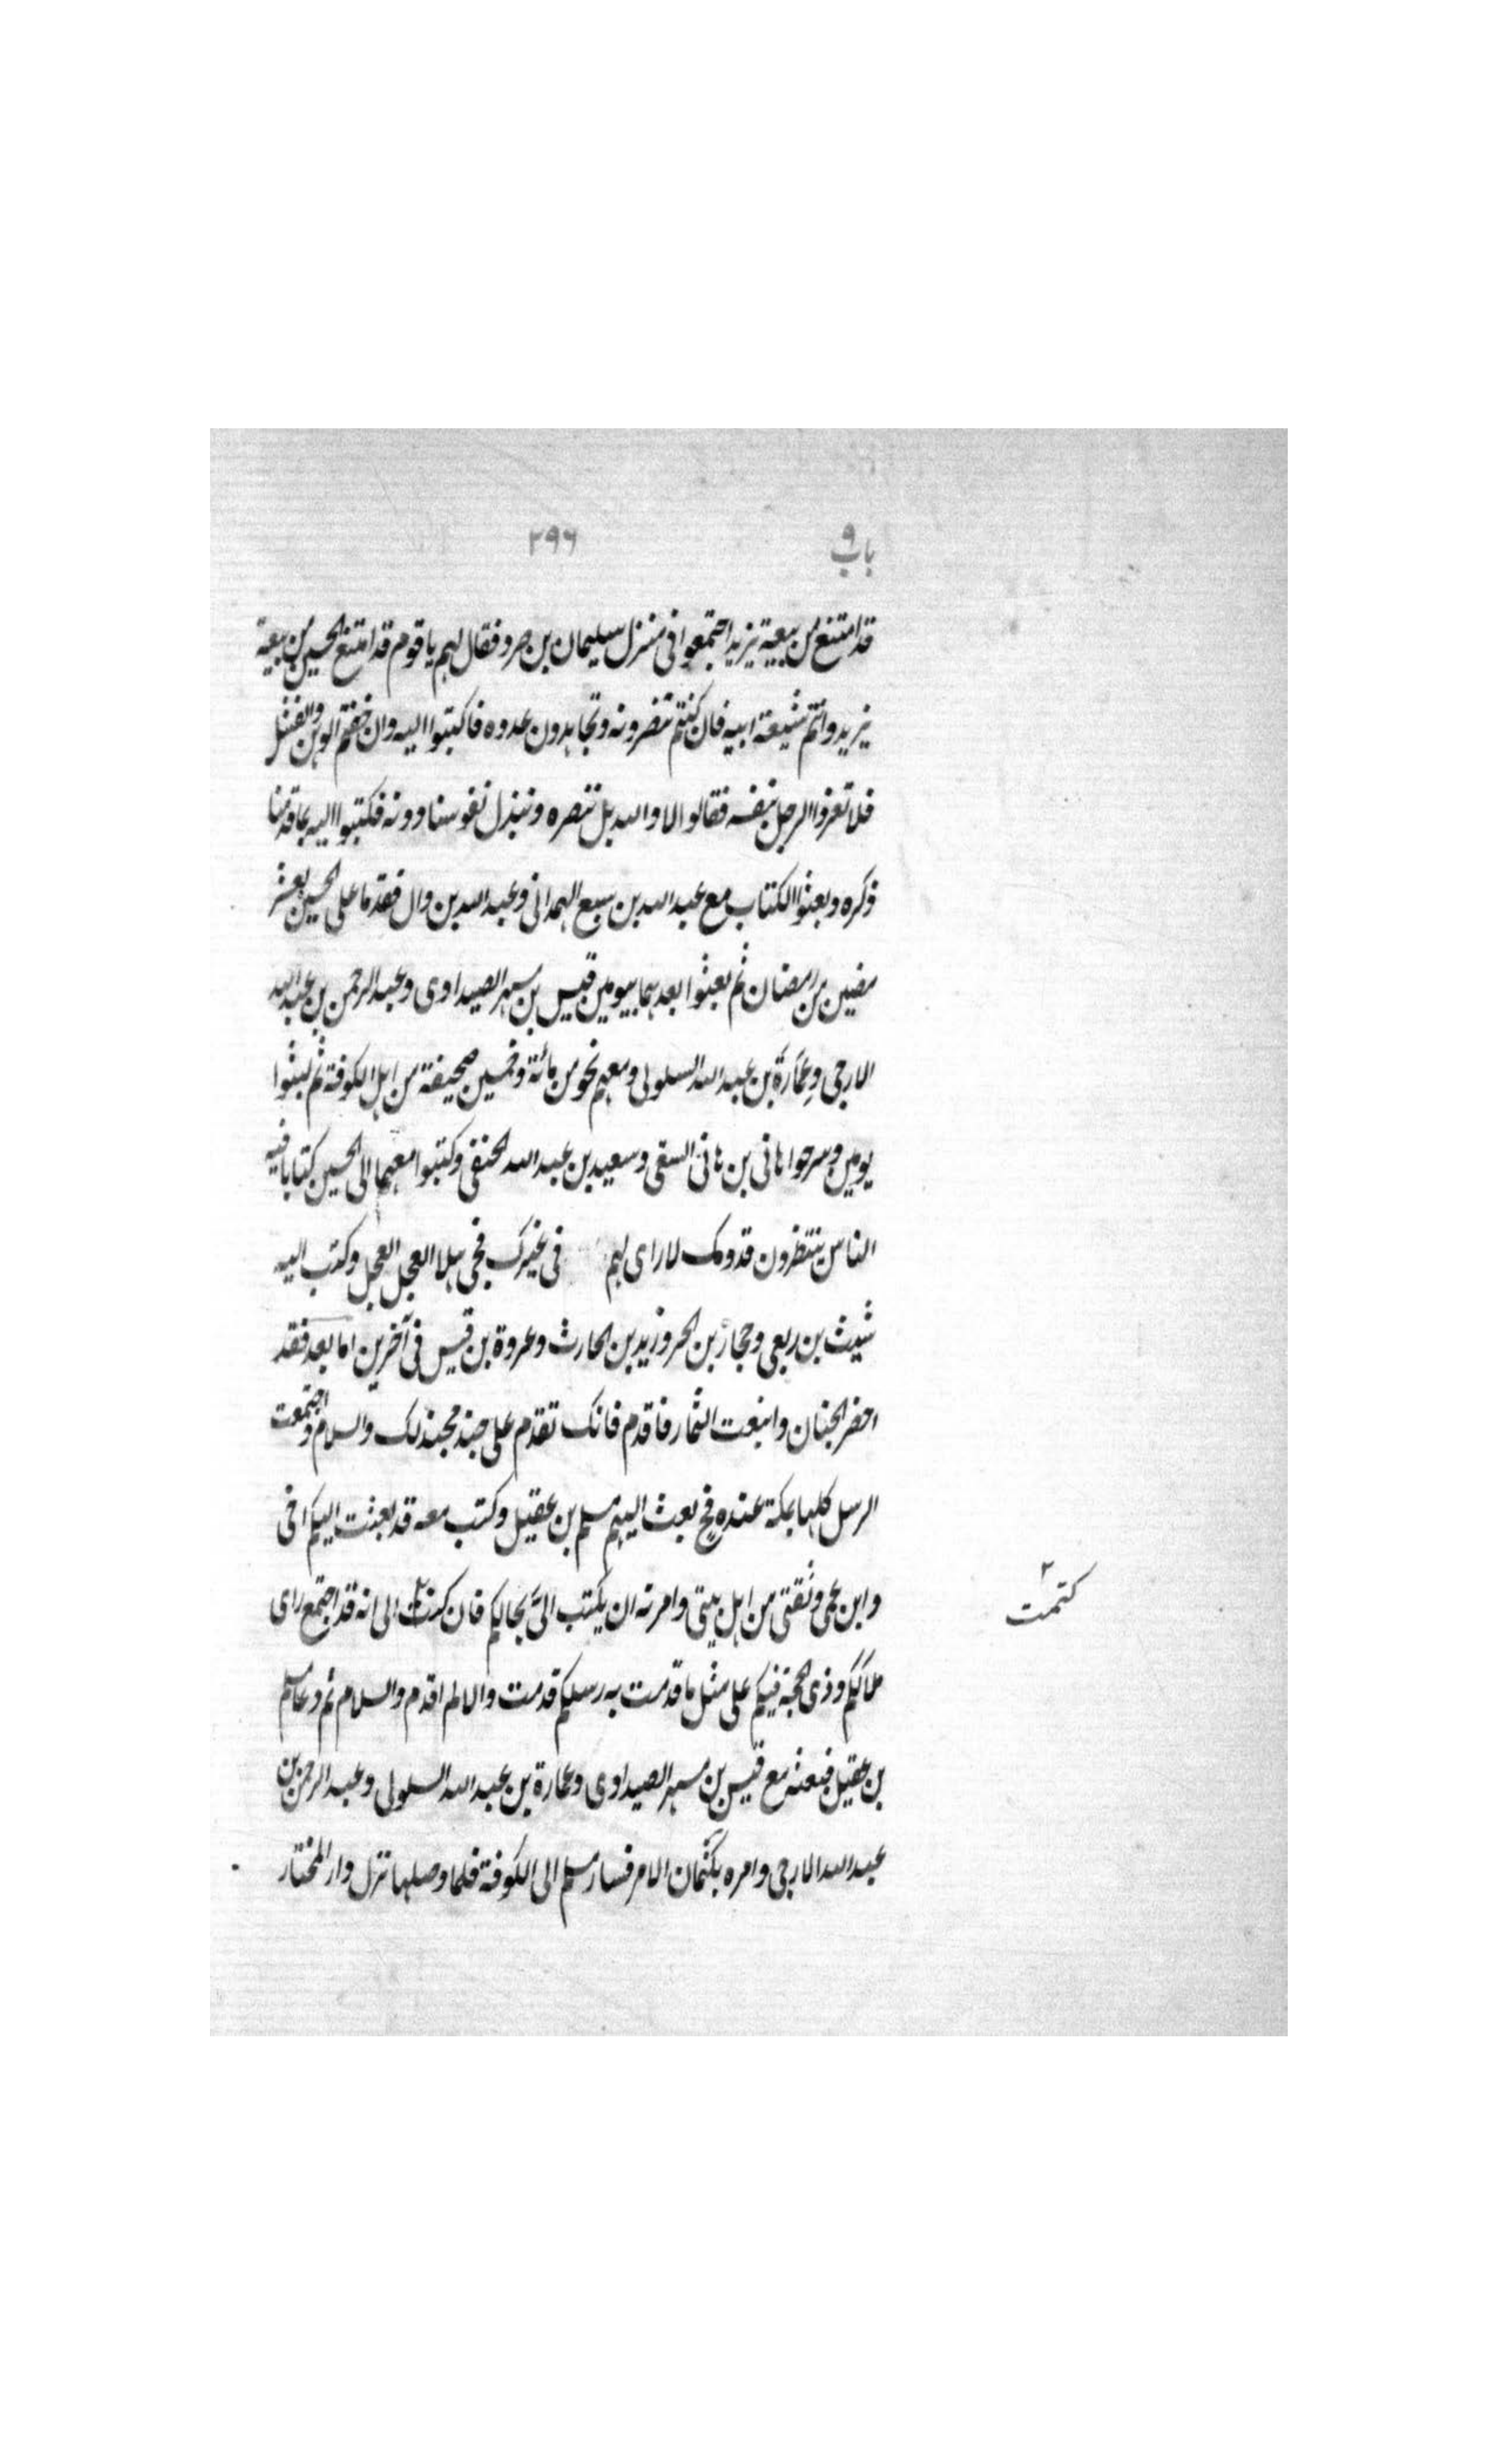 باب ٩ ٢٩٦
قد امتنع من بيعة يزيد اجتمعوا فى منزل سليمان بن صرد فقال لهم يا قوم قد امتنع الحسين من بيعة
يزيد وانتم شيعة ابيه فان كنتم تنصرونه وتجاهدون عدوه فاكتبوا اليه وان خفتم الوهن والفشل
فلا تغروا الرجل بنفسه فقالوا لا والله بل ننصره ونبذل نفوسنا دونه فكتبوا اليه بما قدمنا
ذكره وبعثوا الكتاب مع عبد الله بن سبع الهمدانى وعبد الله بن وال فقدما على الحسين لعشر
مضين من رمضان ثم بعثوا بعدهما بيومين قيس بن مسهر الصيداوى وعبد الرحمن بن عبد الله
الارجى وعمارة بن عبد الله السلولى ومعهم نحو من مائة وخمسين صحيفة من اهل الكوفة ثم لبثوا
يومين وسرحوا هانى بن هانى السقى وسعيد بن عبد الله الحنفى وكتبوا معهما الى الحسين كتابا فيه
الناس ينتظرون قدومك لا راى لهم فى غيرك فحى هلا العجل العجل وكتب اليه
شيث بن ربعى وحجار بن الحر وزيد بن الحارث وعروة بن قيس فى آخرين اما بعد فقد
احضر الجنان واينعت الثمار فاقدم فانك تقدم على جند مجند لك والسلام واجتمعت
الرسل كلها بمكة عنده فح بعث اليهم مسلم بن عقيل وكتب معه قد بعثت اليكم اخى
وابن عمى وثقتى من اهل بيتى وامرته ان يكتب الىّ بحالكم فان كتب الى انه قد اجتمع راى
ملائكم وذى الحجة فيكم على مثل ما قدمت به رسلكم قدمت والا لم اقدم والسلام ثم دعا مسلم
بن عقيل فبعثه مع قيس بن مسهر الصيداوى وعمارة بن عبد الله السلولى وعبد الرحمن بن
عبد الله الارجى وامره بكتمان الامر فسار مسلم الى الكوفة فلما وصلها نزل دار المختار
كتمت